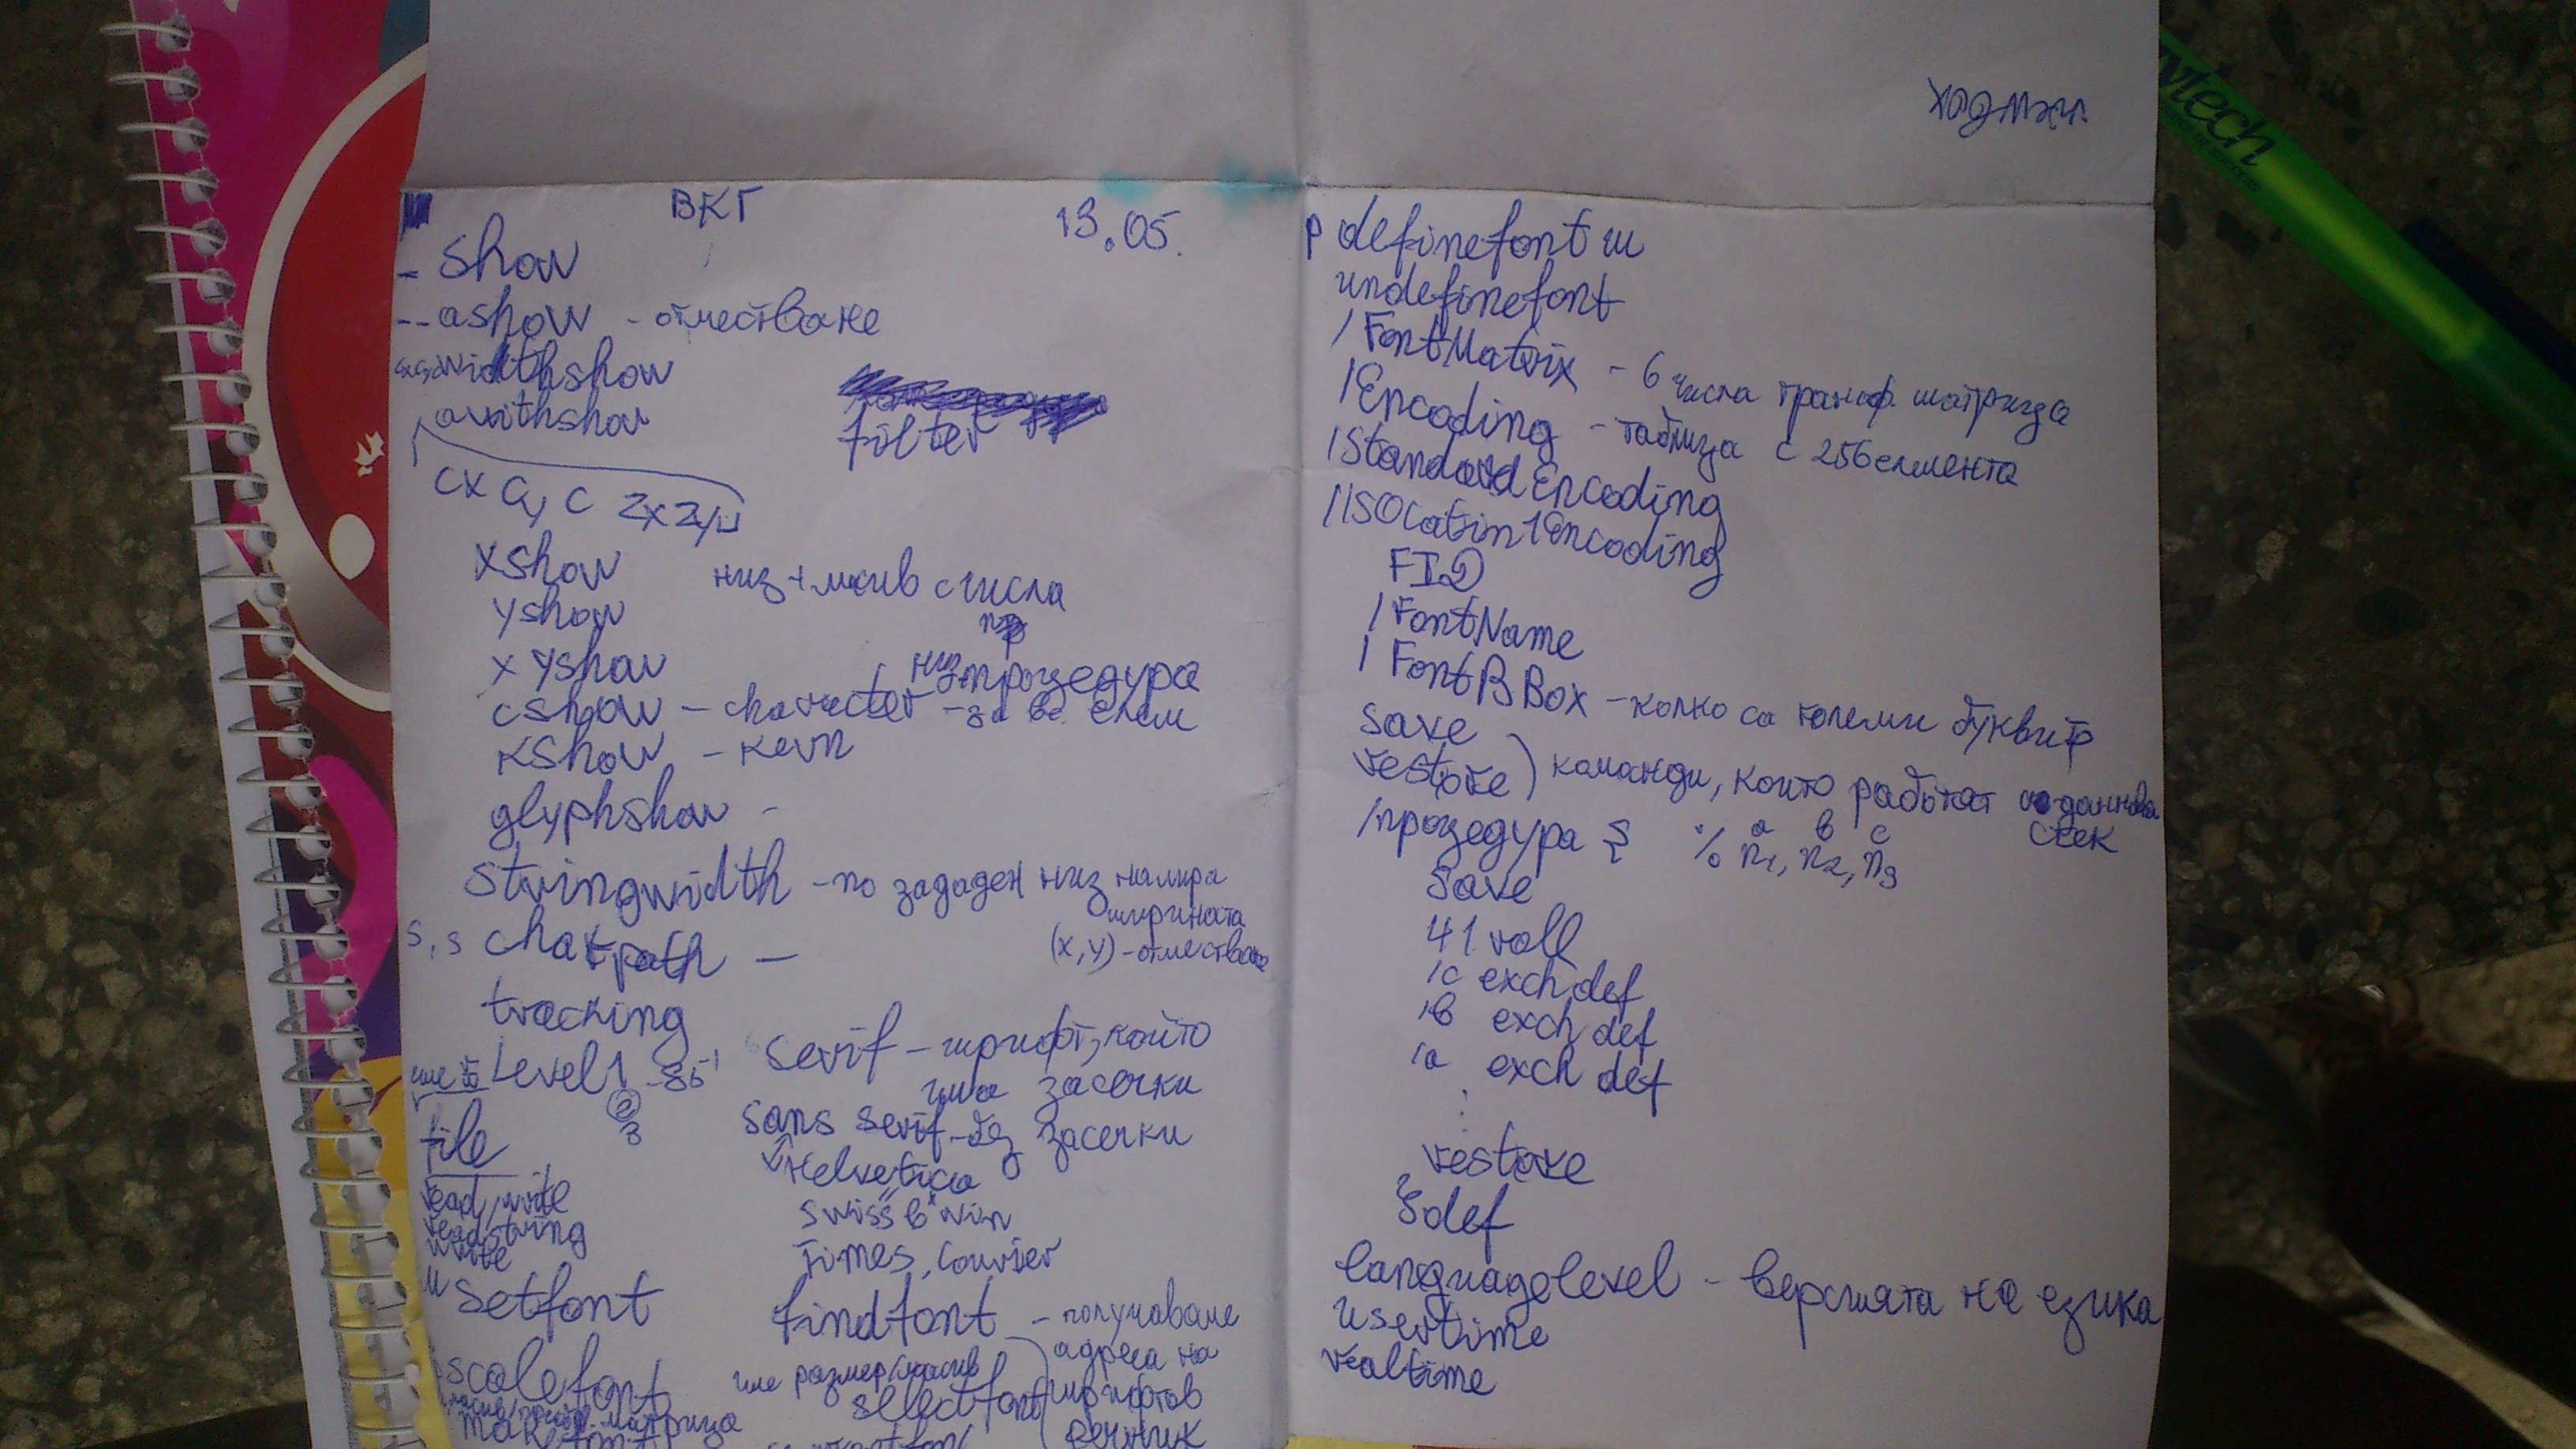 ВКГ
13.05.
- show
-- ashow - отместване
widthshow
awithshow
filter
cx cy c zx zy
xshow
низ + масив с числа
yshow
xyshow
низ процедура
cshow - character - за вс. елем
kshow - kern
glyphshow -
stringwidth - по зададен низ намира
ширината
(x, y) - отместване
s, s charpath -
tracking
serif - шрифт, който
има засечки
Level 1 - 85
2
3
sans serif - без засечки
file
Helvetica
read, write
readstring
write
swiss в win
Times, Courier
setfont
findfont - получаваме
адреса на
шрифтов
речник
scalefont
име размер/масив
selectfont
матрица
makefont
ходмил
р definefont ш
undefinefont
/FontMatrix - 6 числа трансф. матрица
/Encoding - таблица с 256 елемента
/StandardEncoding
/ISOLatin1Encoding
FID
/FontName
/FontBBox - колко са големи буквите
save
restore ) команди, които работят
стек
/процедура { % n1, n2, n3
a в c
save
4 1 roll
/c exch def
/в exch def
/a exch def
⋮
restore
} def
languagelevel - версията на езика
usertime
realtime
vtech